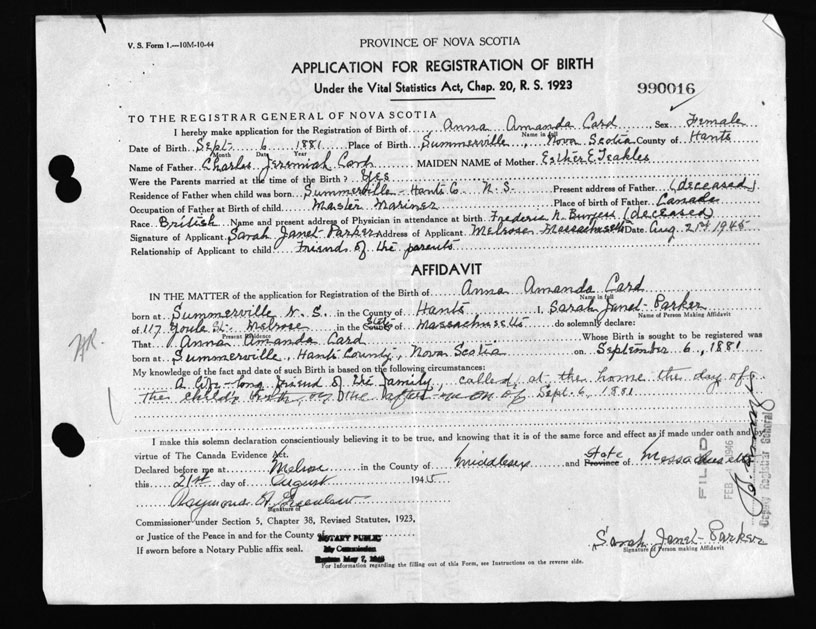 V. S. Form 1.—10M-10-44
PROVINCE OF NOVA SCOTIA
APPLICATION FOR REGISTRATION OF BIRTH
Under the Vital Statistics Act, Chap. 20, R. S. 1923
990016
TO THE REGISTRAR GENERAL OF NOVA SCOTIA
I hereby make application for the Registration of Birth of Anna Amanda Card Sex Female
Name in full
Date of Birth Sept. 6 1881 Place of Birth Summerville, Nova Scotia County of Hants
Month Date Year
Name of Father Charles Jeremiah Card MAIDEN NAME of Mother Esther E Teakles
Were the Parents married at the time of the Birth? Yes
Residence of Father when child was born Summerville - Hants Co. N. S. Present address of Father (deceased)
Occupation of Father at Birth of child Master Mariner Place of birth of Father Canada
Race British Name and present address of Physician in attendance at birth Frederic N. Burgess (deceased)
Signature of Applicant Sarah Janet Parker Address of Applicant Melrose Massachusetts Date Aug 21st 1945
Relationship of Applicant to child Friends of the parents
AFFIDAVIT
IN THE MATTER of the application for Registration of the Birth of Anna Amanda Card
Name in full
born at Summerville N. S. in the County of Hants I, Sarah Janet Parker
Name of Person Making Affidavit
of 117 St. Melrose in the County of State Massachusetts do solemnly declare:
Present Residence
That Anna Amanda Card Whose Birth is sought to be registered was
born at Summerville, Hants County, Nova Scotia on September 6, 1881
My knowledge of the fact and date of such Birth is based on the following circumstances:
A life-long friend of the family, called at the home the day of
the child's birth, on the after-noon of Sept. 6, 1881
I make this solemn declaration conscientiously believing it to be true, and knowing that it is of the same force and effect as if made under oath and by
virtue of The Canada Evidence Act.
Declared before me at Melrose in the County of Middlesex and Province of State Massachusetts
this 21st day of August 1945
Raymond A. Greenlaw
Signature of
Commissioner under Section 5, Chapter 38, Revised Statutes, 1923,
or Justice of the Peace in and for the County of
If sworn before a Notary Public affix seal.
NOTARY PUBLIC
My Commission
Expires May 7,
Sarah Janet Parker
Signature of Person making Affidavit
For Information regarding the filling out of this Form, see Instructions on the reverse side.
FILED
FEB 1946
Deputy Registrar General